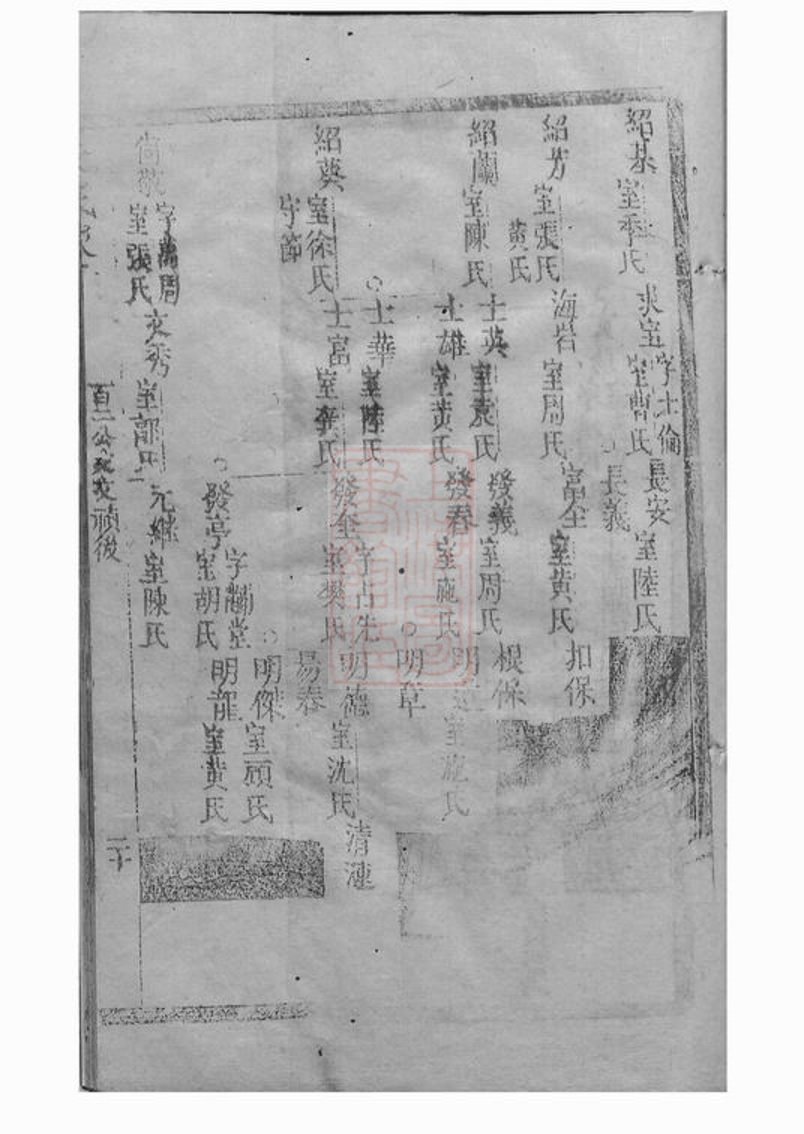 紹基 室季氏
求宝 字士倫 室曹氏
長安 室陸氏
長義
紹芳 室張氏 黄氏
海岩 室周氏
富全 室黄氏
扣保
紹蘭 室陳氏
士英 室袁氏
發義 室周氏
根保
士雄 室黄氏
發春 室施氏
室施氏
明草
士華 室陸氏
紹英 室徐氏 守節
士富 室龔氏
發全 字占先 室樊氏
明德 室沈氏
清漣
易春
發亭 室胡氏
明傑 室顧氏
明龍 室黄氏
尙敬 字萬周 室張氏
文秀
元継 室陳氏
二十